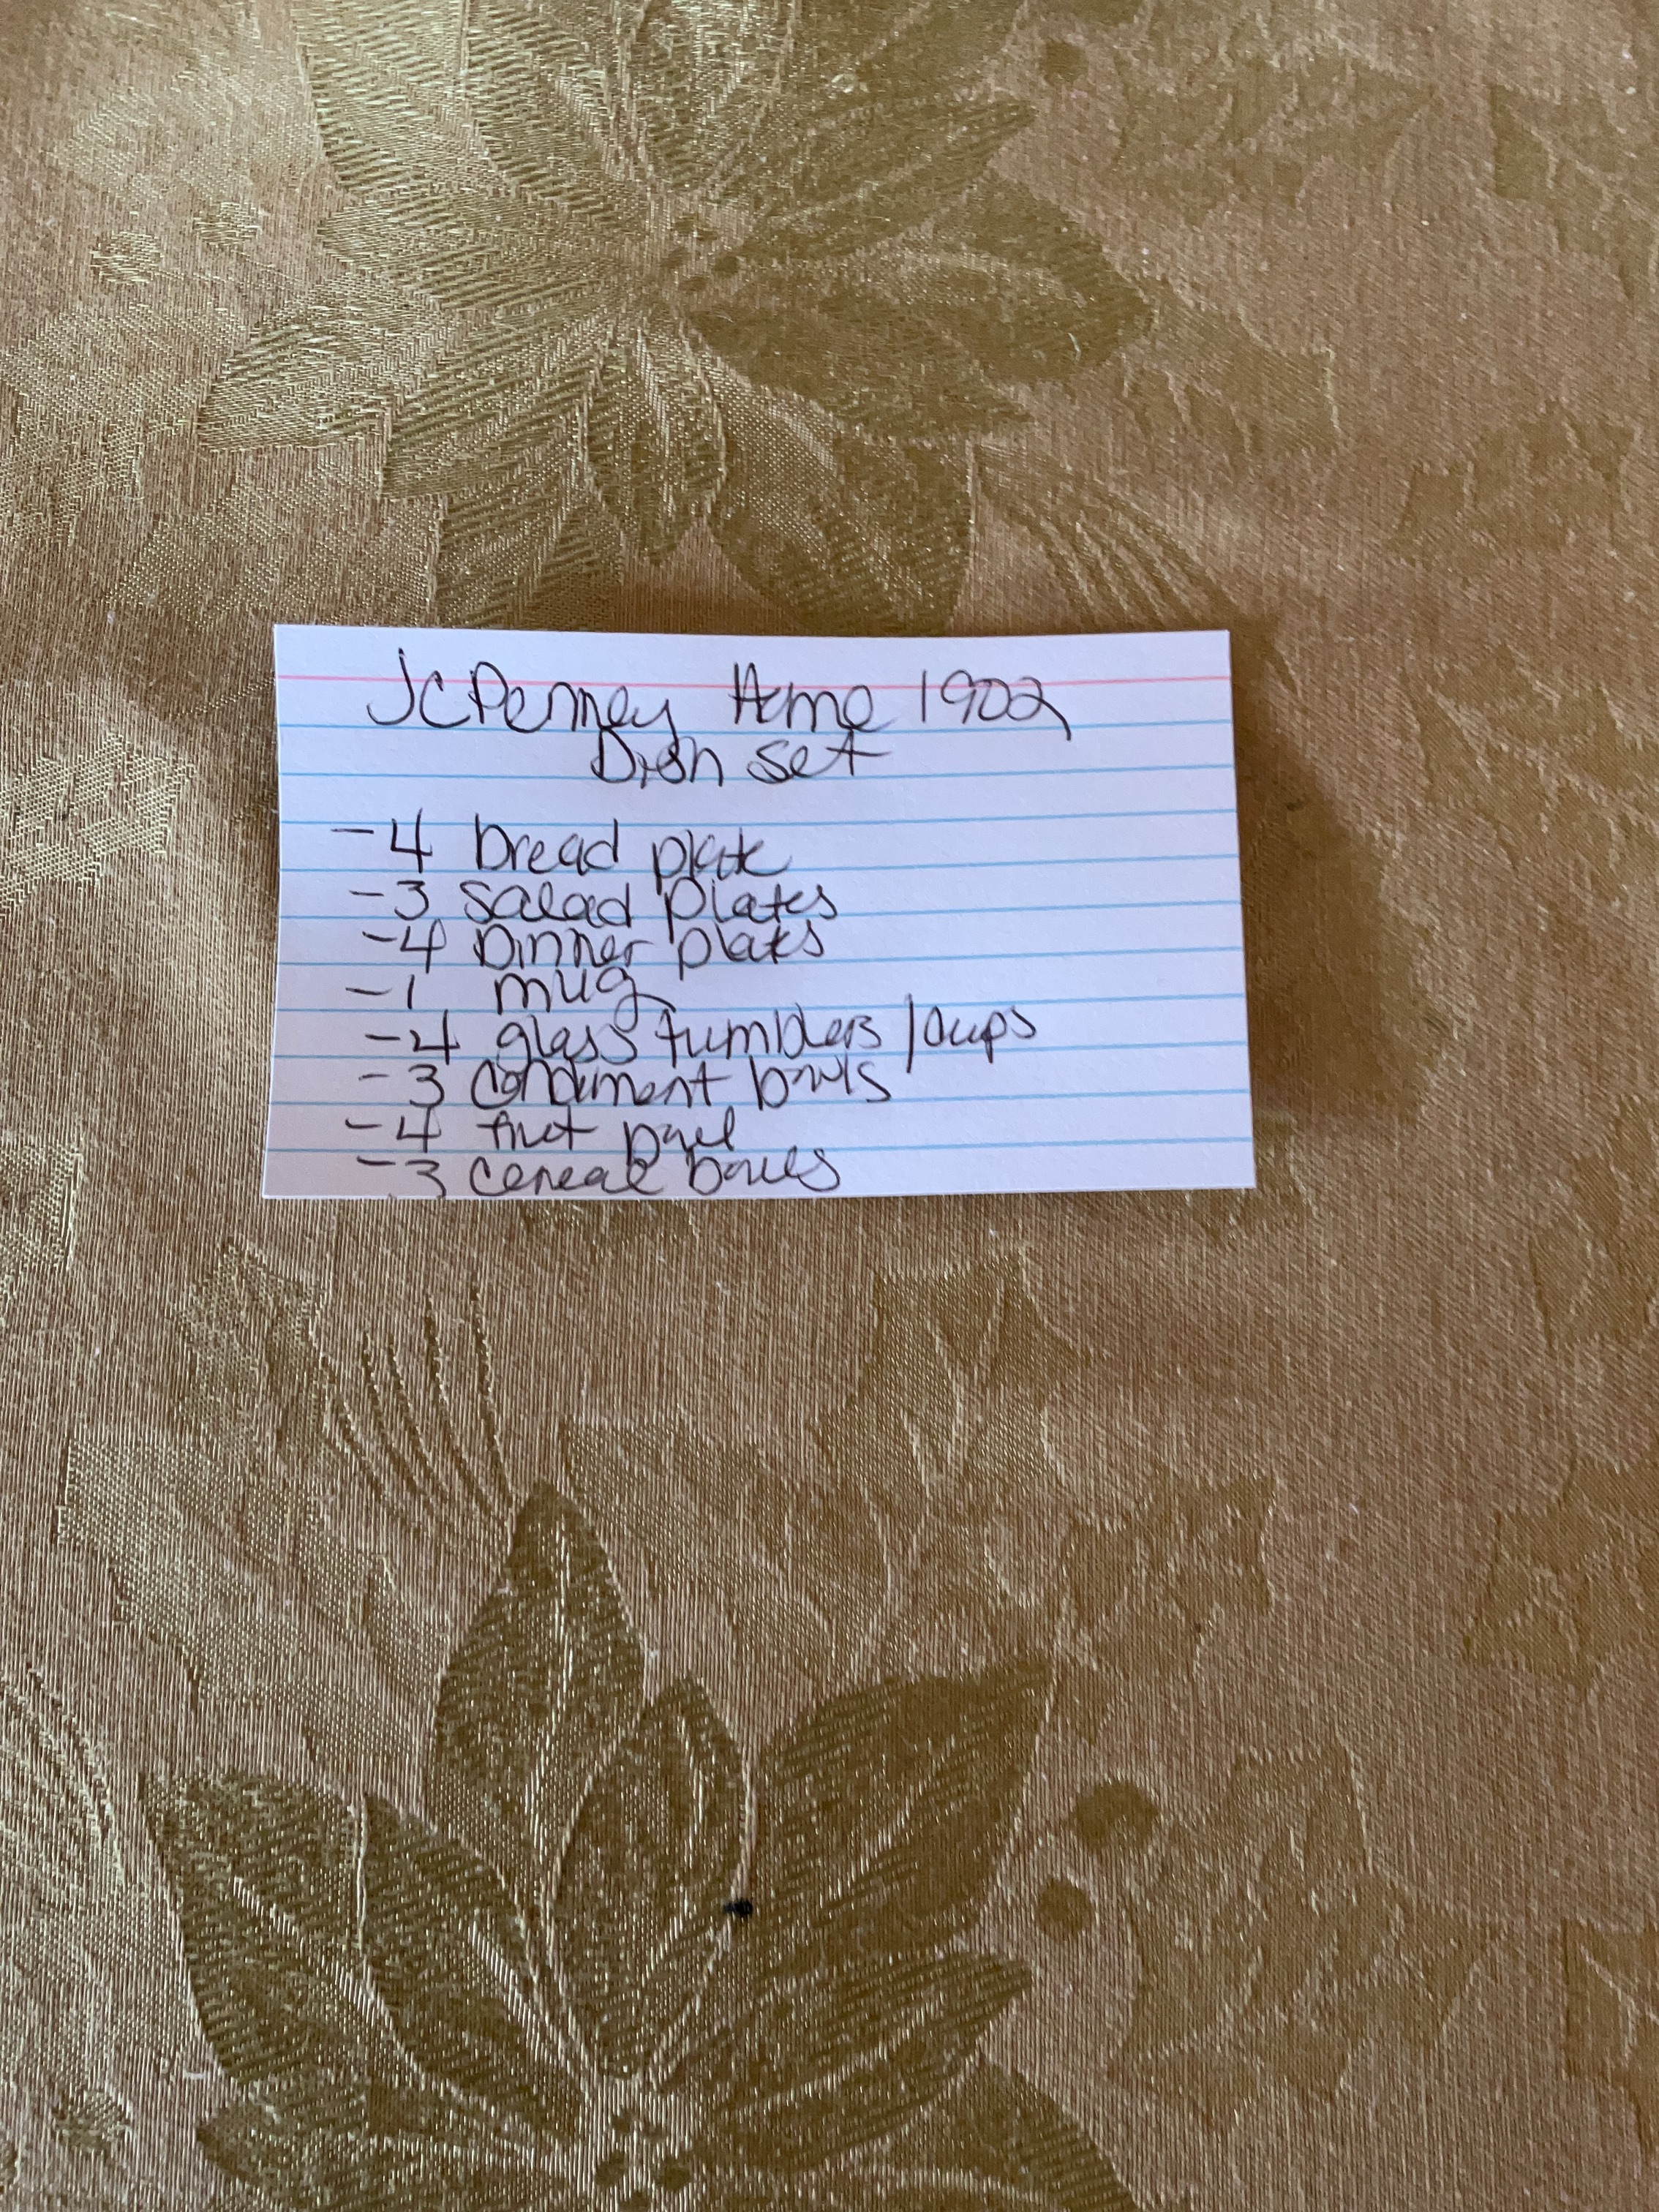 JCPenney Home 1902
Dish set
-4 bread plate
-3 salad plates
-4 Dinner plates
-1 mug
-4 glass tumblers/cups
-3 condiment bowls
-4 fruit bowl
-3 cereal bowls